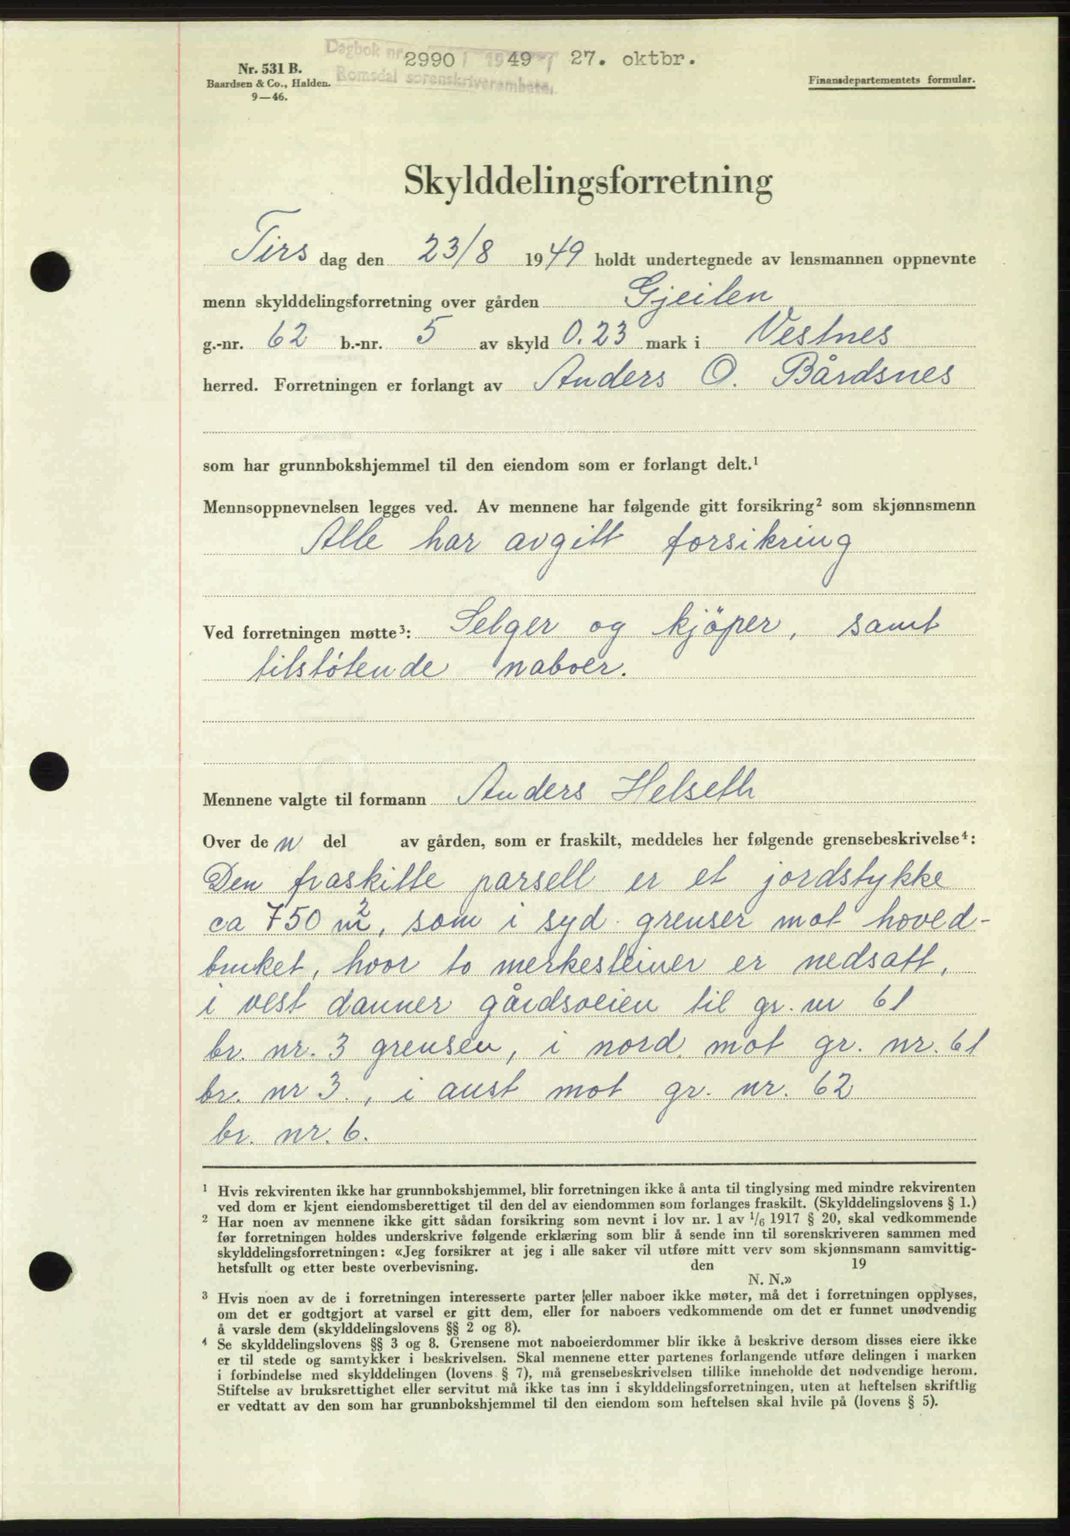 Dagbok nr. 2990 / 1949 27. oktbr.
Romsdal sorenskriverembete.
Nr. 531 B.
Baardsen & Co., Halden.
9—46.
Finansdepartementets formular.
Skylddelingsforretning
Tirs dag den 23/8 1949 holdt undertegnede av lensmannen oppnevnte
menn skylddelingsforretning over gården Gjeilen
g.-nr. 62 b.-nr. 5 av skyld 0.23 mark i Vestnes
herred. Forretningen er forlangt av Anders O. Bårdsnes
som har grunnbokshjemmel til den eiendom som er forlangt delt.¹
Mennsoppnevnelsen legges ved. Av mennene har følgende gitt forsikring² som skjønnsmenn
Alle har avgitt forsikring
Ved forretningen møtte³: Selger og kjöper, samt
tilstötende naboer.
Mennene valgte til formann Anders Helseth
Over de n del av gården, som er fraskilt, meddeles her følgende grensebeskrivelse⁴:
Den fraskilte parsell er et jordstykke
ca 750 m², som i syd grenser mot hoved-
bruket, hvor to merkesteiner er nedsatt,
i vest danner gårdsveien til gr. nr 61
br. nr. 3 grensen, i nord mot gr. nr. 61
br. nr 3., i aust mot gr. nr. 62
br. nr. 6.
¹ Hvis rekvirenten ikke har grunnbokshjemmel, blir forretningen ikke å anta til tinglysing med mindre rekvirenten
ved dom er kjent eiendomsberettiget til den del av eiendommen som forlanges fraskilt. (Skylddelingslovens § 1.)
² Har noen av mennene ikke gitt sådan forsikring som nevnt i lov nr. 1 av 1/6 1917 § 20, skal vedkommende
før forretningen holdes underskrive følgende erklæring som blir å sende inn til sorenskriveren sammen med
skylddelingsforretningen: «Jeg forsikrer at jeg i alle saker vil utføre mitt verv som skjønnsmann samvittig-
hetsfullt og etter beste overbevisning. den 19
N. N.»
³ Hvis noen av de i forretningen interesserte parter eller naboer ikke møter, må det i forretningen opplyses,
om det er godtgjort at varsel er gitt dem, eller for naboers vedkommende om det er funnet unødvendig
å varsle dem (skylddelingslovens §§ 2 og 8).
⁴ Se skylddelingslovens §§ 3 og 8. Grensene mot naboeierdommer blir ikke å beskrive dersom disses eiere ikke
er til stede og samtykker i beskrivelsen. Skal mennene etter partenes forlangende utføre delingen i marken
i forbindelse med skylddelingen (lovens § 7), må grensebeskrivelsen tillike inneholde det nødvendige herom.
Stiftelse av bruksrettighet eller servitut må ikke tas inn i skylddelingsforretningen, uten at heftelsen skriftlig
er vedtatt av den som har grunnbokshjemmel til den eiendom som heftelsen skal hvile på (lovens § 5).